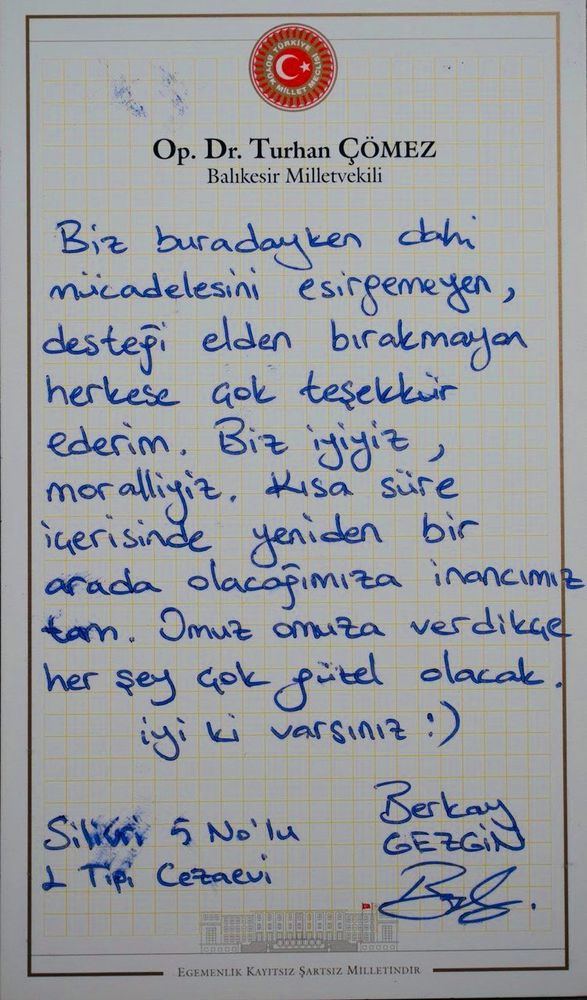 TÜRKİYE
BÜYÜK MİLLET MECLİSİ
Op. Dr. Turhan ÇÖMEZ
Balıkesir Milletvekili
Biz buradayken dahi
mücadelesini esirgemeyen,
desteği elden bırakmayan
herkese çok teşekkür
ederim. Biz iyiyiz,
moralliyiz. Kısa süre
içerisinde yeniden bir
arada olacağımıza inancımız
tam. Omuz omuza verdikçe
her şey çok güzel olacak.
iyi ki varsınız :)
Berkay
GEZGİN
Silivri 5 No'lu
L Tipi Cezaevi
EGEMENLİK KAYITSIZ ŞARTSIZ MİLLETİNDİR